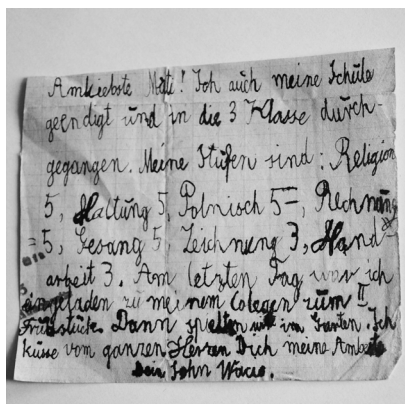 Amliebste Mati! Ich auch meine Schüle
geendigt und in die 3 Klasse durch-
gegangen. Meine Stufen sind: Religion
5, Haltung 5, Polnisch 5=, Rechnung
=5, Gesang 5, Zeichnung 3, Hand-
arbeit 3. Am letzten Tag war ich
eingeladen zu meinem Colegen zum II
Frühstück. Dann spielten wir im Garten. Ich
küsse vom ganzen Herzen Dich meine
Dein Sohn